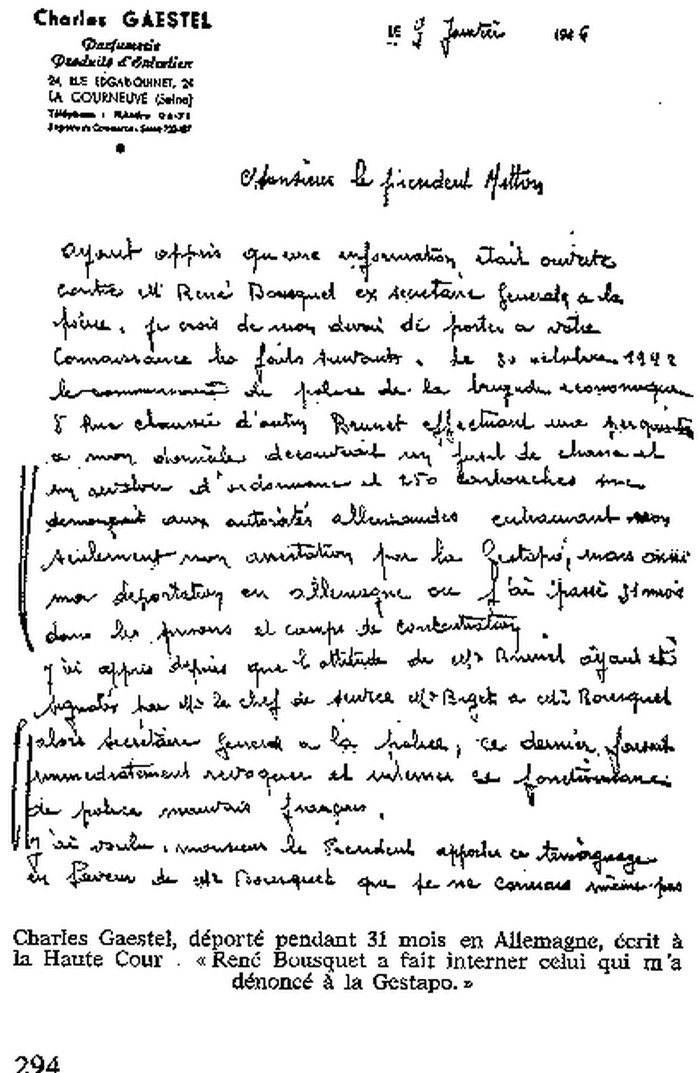 Charles GAESTEL
Parfumerie
Produits d'Entretien
24, RUE EDGAR QUINET, 24
LA COURNEUVE (Seine)
LE 9 Janvier 1946
Monsieur le president Mitton
ayant appris qu'une information était ouverte
contre Mr René Bousquet ex secretaire General a la
police, je crois de mon devoir de porter a votre
Connaissance les faits suivants. Le 30 octobre 1942
le de police de la brigade economique
rue chaussée d'antin Brunet effectuant une perquisition
a mon domicile decouvrait un fusil de chasse et
un d'ordonnance et 250 cartouches me
denonçait aux autorités allemandes entrainant non
seulement mon arrestation par la Gestapo, mais aussi
ma deportation en allemagne ou j'ai passé 31 mois
dans les prisons et camps de concentration
J'ai appris depuis que l'attitude de Mr Brunet ayant été
signalée par Mr le chef de service Mr a Mr Bousquet
alors secrétaire General a la police, ce dernier faisait
immediatement revoquer et interner ce fonctionnaire
de police mauvais français.
J'ai voulu, monsieur le President apporter ce temoignage
en faveur de Mr Bousquet que je ne connais même pas
Charles Gaestel, déporté pendant 31 mois en Allemagne, écrit à
la Haute Cour . « René Bousquet a fait interner celui qui m'a
dénoncé à la Gestapo. »
294